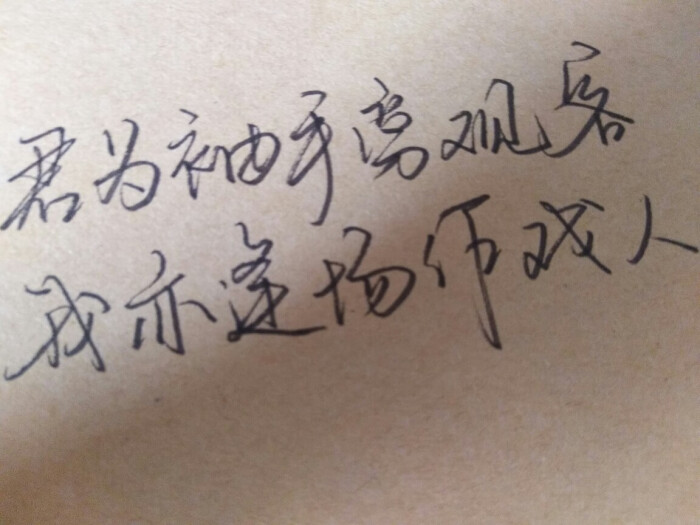 君为袖手离观客
我亦逢场作戏人